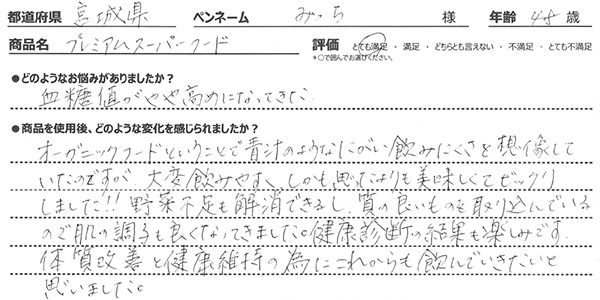 都道府県 宮城県 ペンネーム みっち 様 年齢 48 歳
商品名 プレミアムスーパーフード 評価 とても満足 ・ 満足 ・ どちらとも言えない ・ 不満足 ・ とても不満足
*○で囲んでお選びください。
●どのようなお悩みがありましたか？
血糖値がやや高めになってきた.
●商品を使用後、どのような変化を感じられましたか？
オーガニックフードということで青汁のようなにがい飲みにくさを想像して
いたのですが、大変飲みやすく、しかも思ったよりも美味しくてビックリ
しました!! 野菜不足も解消できるし、質の良いものを取り込んでいる
ので肌の調子も良くなってきました。健康診断の結果も楽しみです.
体質改善と健康維持の為にこれからも飲んでいきたいと
思いました。